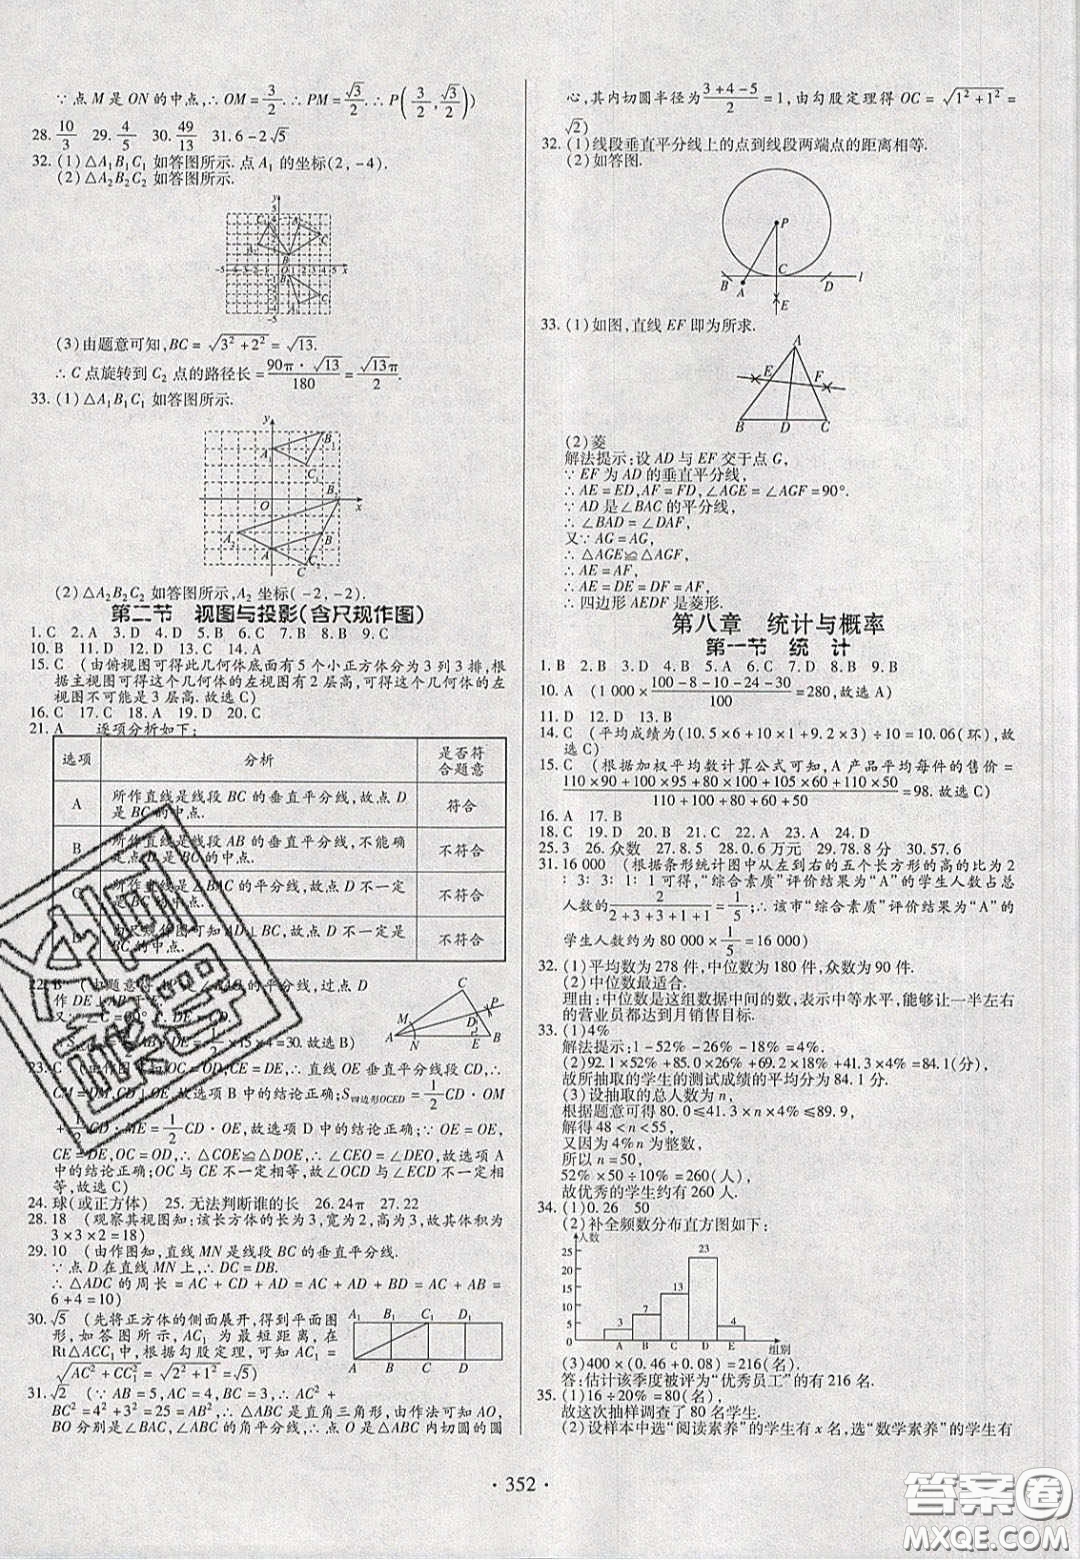 ∵点M是ON的中点,∴OM=3/2.∴PM=√3/2.∴P(3/2,√3/2))
28.10/3 29.4/5 30.49/13 31.6-2√5
32.(1)△A₁B₁C₁如答图所示.点A₁的坐标(2,-4).
(2)△A₂B₂C₂如答图所示.
(3)由题意可知,BC=√3²+2²=√13.
∴C点旋转到C₂点的路径长=90π·√13/180=√13π/2.
33.(1)△A₁B₁C₁如答图所示.
(2)△A₂B₂C₂如答图所示,A₂坐标(-2,-2).
第二节 视图与投影(含尺规作图)
1.C 2.A 3.A 4.B 5.C 6.C 7.B 8.B 9.C
10.B 11.D 12.D 13.C 14.A
15.C (由俯视图可得此几何体底面有5个小正方体分为3列3排,根
据主视图可得这个几何体的左视图有2层高,可得这个几何体的左
视图不可能是3层高.故选C)
16.C 17.C 18.A 19.D 20.C
21.A 逐项分析如下:
选项 分析 是否符合题意
A 所作直线是线段BC的垂直平分线,故点D 符合
是BC的中点.
B 所作直线是线段AB的垂直平分线,不能确 不符合
定点D是BC的中点.
所作直线是∠BAC的平分线,故点D不一定 不符合
是BC的中点.
由尺规作图可知AD⊥BC,故点D不一定是 不符合
BC的中点.
22.B (由题意得AP是∠BAC的平分线,过点D
作DE⊥AB于E,
=1/2×15×4=30.故选B)
23.C (由作图步骤知OC=OD,CE=DE,∴OE垂直平分线段CD,∴
CM=DM,CD⊥OE,故选项B中的结论正确;S四边形OCED=1/2CD·OM
+1/2CD·ME=1/2CD·OE,故选项D中的结论正确;∵OE=OE,
CE=DE,OC=OD,∴△COE≌△DOE,∴∠CEO=∠DEO,故选项A
中的结论正确;OC与CE不一定相等,故∠OCD与∠ECD不一定相
等,故选C)
24.球(或正方体) 25.无法判断谁的长 26.24π 27.22
28.18 (观察其视图知:该长方体的长为3,宽为2,高为3,故其体积为
3×3×2=18)
29.10 (由作图知,直线MN是线段BC的垂直平分线.
∵点D在直线MN上,∴DC=DB.
∴△ADC的周长=AC+CD+AD=AC+AD+BD=AC+AB=
6+4=10)
30.√5 (先将正方体的侧面展开,得到平面图
形,如答图所示,AC₁为最短距离,在
Rt△ACC₁中,根据勾股定理,可得AC₁=
√AC²+CC₁²=√2²+1²=√5)
A₁ B₁ C₁ D₁
A B C D
31.√2 (∵AB=5,AC=4,BC=3,∴AC²+
BC²=4²+3²=25=AB²,∴△ABC是直角三角形,由作法可知AO,
BO分别是∠BAC,∠ABC的角平分线,∴点O是△ABC内切圆的圆
心,其内切圆半径为3+4-5/2=1,由勾股定理得OC=√1²+1²=
√2)
32.(1)线段垂直平分线上的点到线段两端点的距离相等.
(2)如答图.
P
C
B A D l
E
33.(1)如图,直线EF即为所求.
A
E F
B D C
(2)菱
解法提示:设AD与EF交于点G,
∵EF为AD的垂直平分线,
∴AE=ED,AF=FD,∠AGE=∠AGF=90°.
∵AD是∠BAC的平分线,
∴∠BAD=∠DAF,
又∵AG=AG,
∴△AGE≌△AGF,
∴AE=AF,
∴AE=DE=DF=AF,
∴四边形AEDF是菱形.
第八章 统计与概率
第一节 统计
1.B 2.B 3.D 4.B 5.A 6.C 7.D 8.B 9.B
10.A (1 000×100-8-10-24-30/100=280,故选A)
11.D 12.D 13.B
14.C (平均成绩为(10.5×6+10×1+9.2×3)÷10=10.06(环),故
选C)
15.C (根据加权平均数计算公式可知,A产品平均每件的售价=
110×90+100×95+80×100+105×60+110×50/110+100+80+60+50=98.故选C)
16.A 17.B
18.C 19.D 20.B 21.C 22.D 23.A 24.D
25.3 26.众数 27.8.5 28.0.6万元 29.78.8分 30.57.6
31.16 000 (根据条形统计图中从左到右的五个长方形的高的比为2
∶3∶3∶1∶1可得,“综合素质”评价结果为“A”的学生人数占总
人数的2/2+3+3+1+1=1/5;∴该市“综合素质”评价结果为“A”的
学生人数约为80 000×1/5=16 000)
32.(1)平均数为278件,中位数为180件,众数为90件.
(2)中位数最适合.
理由:中位数是这组数据中间的数,表示中等水平,能够让一半左右
的营业员都达到月销售目标.
33.(1)4%
解法提示:1-52%-26%-18%=4%.
(2)92.1×52%+85.0×26%+69.2×18%+41.3×4%=84.1(分)
故所抽取的学生的测试成绩的平均分为84.1分.
(3)设抽取的总人数为n,
根据题意可得80.0≤41.3×2%×n≤89.9,
解得48<n<55,
又因为4%n为整数,
所以n=50,
52%×50÷10%=260(人),
故优秀的学生约有260人.
34.(1)0.26 50
(2)补全频数分布直方图如下:
人数
25
20
15
10
5
0
3 7 13 23 4
A B C D E 组别
(3)400×(0.46+0.08)=216(名).
答:估计该季度被评为“优秀员工”的有216名.
35.(1)16÷20%=80(名),
故这次抽样调查了80名学生.
(2)设样本中选“阅读素养”的学生有x名,选“数学素养”的学生有
·352·
答案圈
MXQE.COM